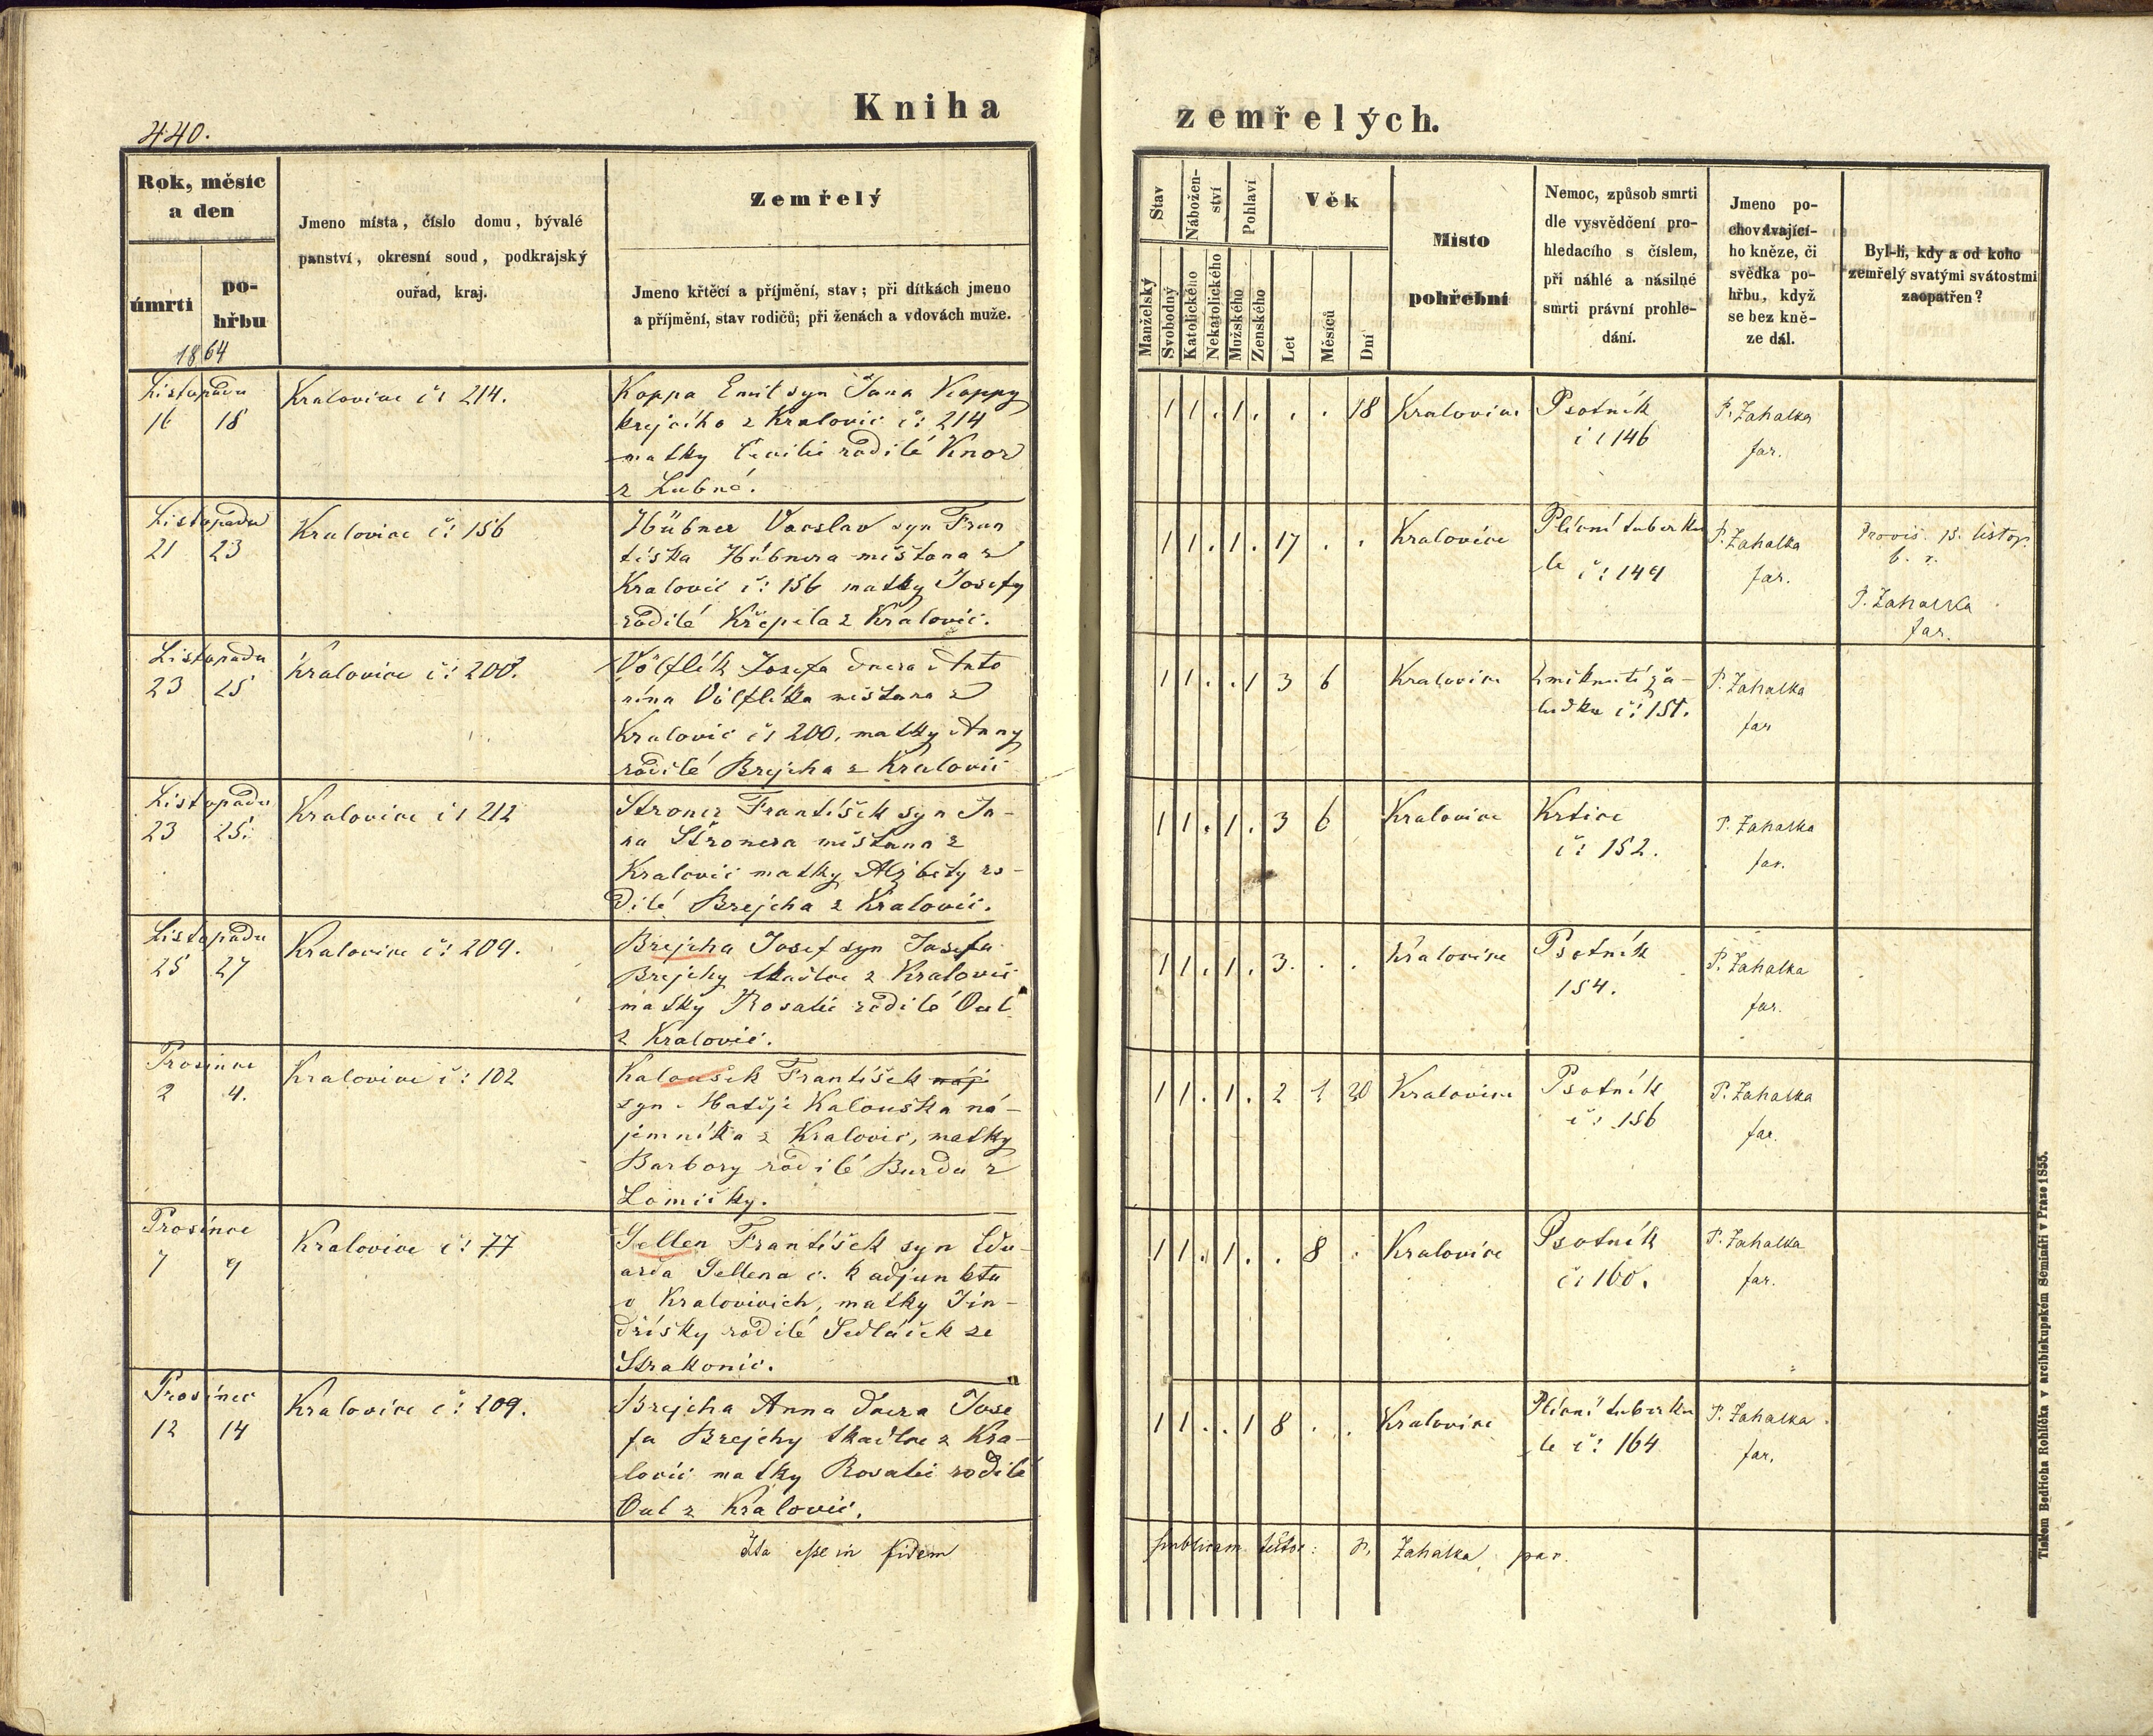 440.
Kniha
zemřelých.
Rok, měsíc
a den
úmrti
po-
hřbu
1864
Jmeno místa, číslo domu, bývalé
panství, okresní soud, podkrajský
ouřad, kraj.
Zemřelý
Jmeno křtěcí a příjmění, stav; při dítkách jmeno
a příjmění, stav rodičů; při ženách a vdovách muže.
Stav
Manželský
Svobodný
Nábožen-
ství
Katolického
Nekatolického
Pohlaví
Mužského
Zenského
Věk
Let
Měsíců
Dní
Místo
pohřební
Nemoc, způsob smrti
dle vysvědčení pro-
hledacího s číslem,
při náhlé a násilné
smrti právní prohle-
dání.
Jmeno po-
chovávající-
ho kněze, či
svědka po-
hřbu, když
se bez kně-
ze dál.
Byl-li, kdy a od koho
zemřelý svatými svátostmi
zaopatřen?
Listopadu
16 18
Kralovice č: 214.
Koppa Emil syn Jana Koppy
krejčího z Kralovic č: 214
matky Cecilie rodilé Knor
z Lubné.
1 1 . 1 . . . 18
Kralovice
Psotník
č: 146
P. Zahalka
far.
Listopadu
21 23
Kralovice č: 156
Hübner Vacslav syn Fran
tiska Hübnera mištana z
Kralovic č: 156 matky Josefy
rodilé Křepela z Kralovic.
1 1 . 1 . 17 . .
Kralovice
Plicní tuberku
le č: 149
P. Zahalka
far.
Provis. 15. listop.
b. r.
P. Zahalka
far.
Listopadu
23 25
Kralovice č: 200.
Völflík Josefa dcera Anto
nína Völflíka mištana z
Kralovic č: 200. matky Anny
rodilé Brejcha z Kralovic
1 1 . . 1 3 6
Kralovice
Zmiknutí ža-
ludku č: 151.
P. Zahalka
far
Listopadu
23 25.
Kralovice č: 212
Stroner František syn Ja-
na Stronera mištana z
Kralovic matky Alžběty ro-
dilé Brejcha z Kralovic.
1 1 . 1 . 3 6
Kralovice
Krtice
č: 152.
P. Zahalka
far.
Listopadu
25 27
Kralovice č: 209.
Brejcha Josef syn Josefa
Brejchy tkadlce z Kralovic
matky Rosalie rodilé Oul
z Kralovic.
1 1 . 1 . 3 . .
Kralovice
Psotník
154.
P. Zahalka
far.
Prosince
2 4.
Kralovice č: 102
Kaloušek František náj
syn Matěje Kalouška ná-
jemníka z Kralovic, matky
Barbory rodilé Burda z
Lomičky.
1 1 . 1 . 2 1 20
Kralovice
Psotník
č: 156
P. Zahalka
far.
Prosince
7 9
Kralovice č: 77
Sellen František syn Edu-
arda Sellena c. k adjunkta
v Kralovicích, matky Jin-
dřišky rodilé Sedláček ze
Strakonic.
1 1 . 1 . . 8 .
Kralovice
Psotník
č: 160.
P. Zahalka
far.
Prosinec
12 14
Kralovice č: 209.
Brejcha Anna dcera Jose
fa Brejchy tkadlce z Kra-
lovic matky Rosalie rodilé
Oul z Kralovic.
1 1 . . 1 8 . .
Kralovice
Plicní tuberku
le č: 164
P. Zahalka
far.
Ita esse in fidem
publicam testor: P. Zahalka, par.
Tiskem Bedřicha Rohlíčka v arcibiskupském Semináři v Praze 1855.